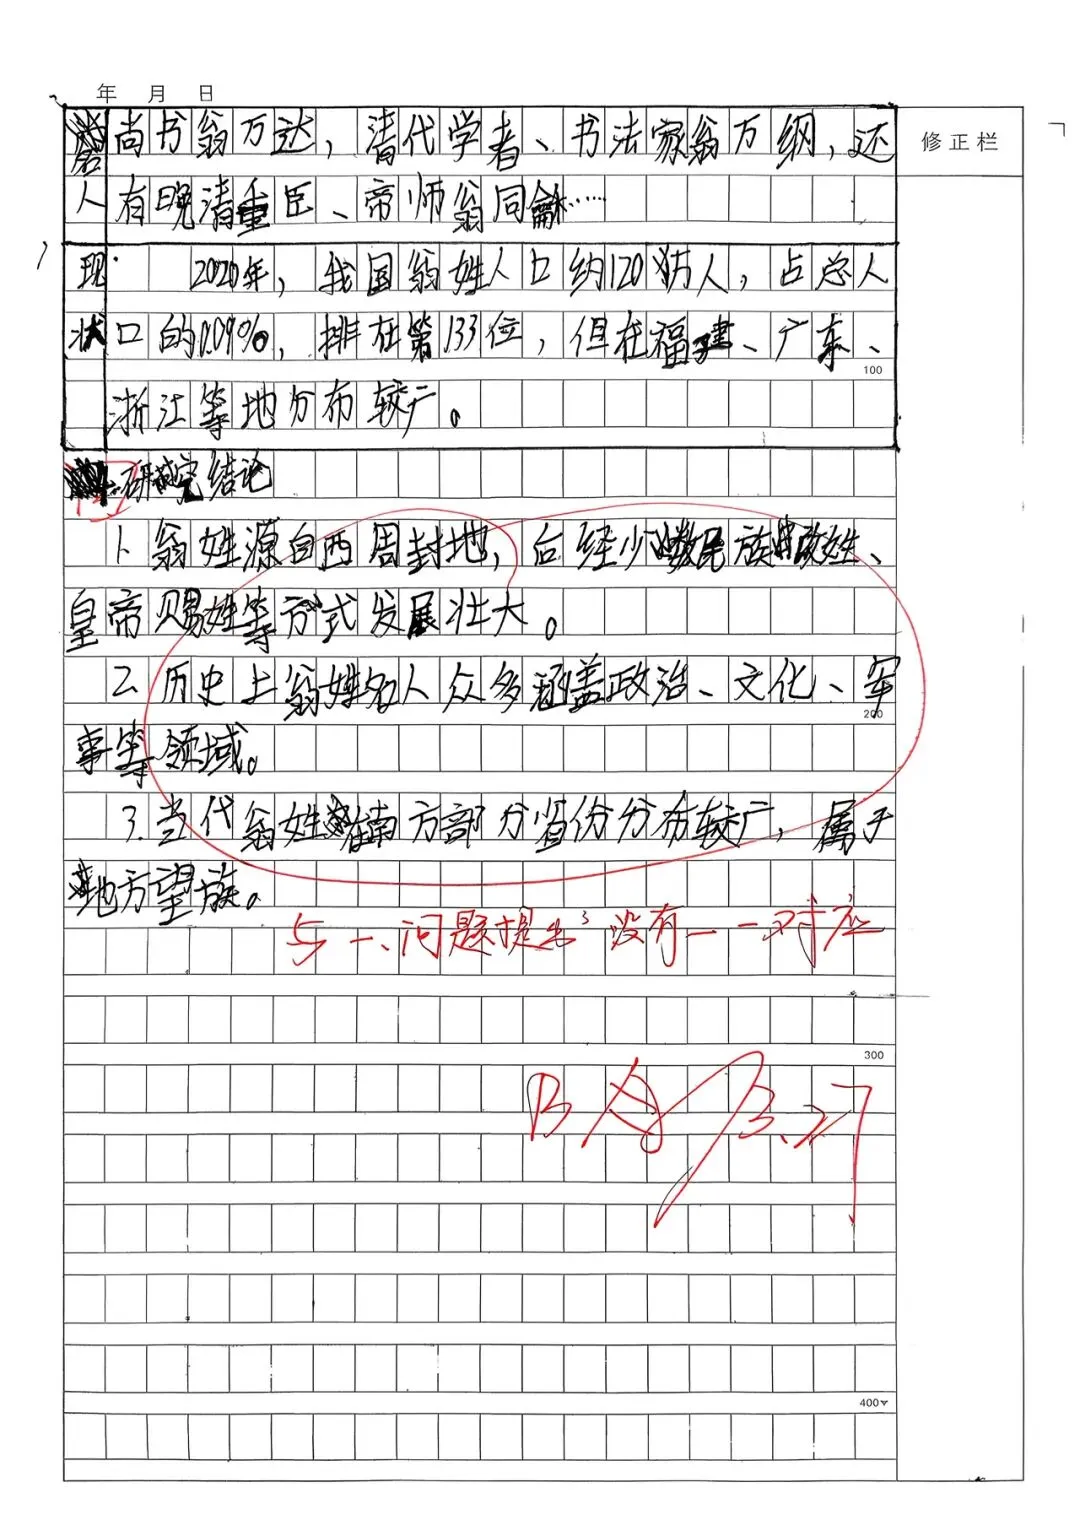 年 月 日
修正栏
名 尚书翁万达，清代学者、书法家翁方纲，还
人 有晚清重臣、帝师翁同龢……
现 2020年，我国翁姓人口约120万人，占总人
状 口的0.09%，排在第133位，但在福建、广东、
100
浙江等地分布较广。
研究结论
1. 翁姓源自西周封地，后经少数民族改姓、
皇帝赐姓等方式发展壮大。
2. 历史上翁姓名人众多涵盖政治、文化、军
200
事等领域。
3. 当代翁姓在南方部分省份分布较广，属于
地方望族。
与一、问题提出 没有一一对应
300
B
3.27
400